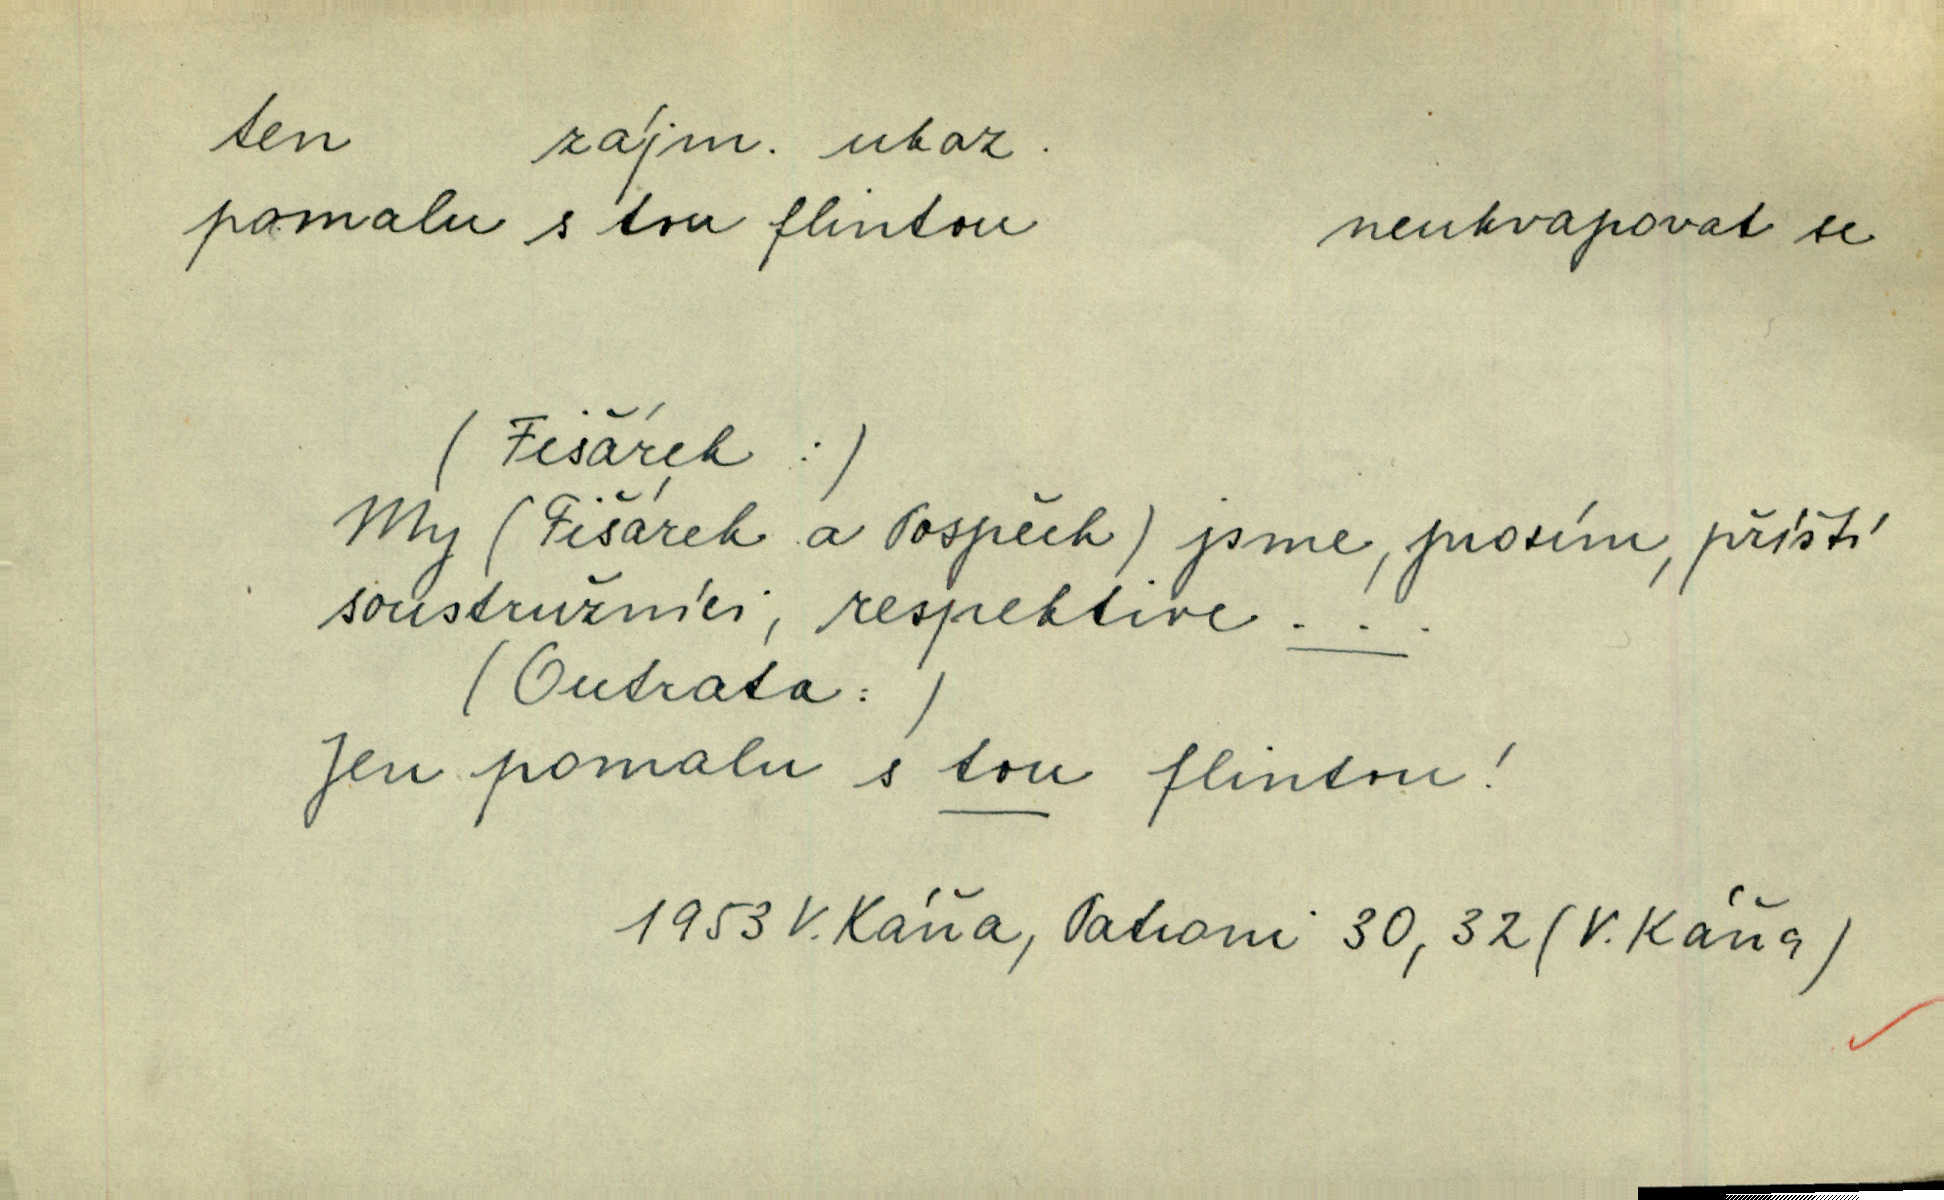 ten zájm. ukaz.
pomalu s tou flintou neukvapovat se
( Fišárek : )
My ( Fišárek a Pospěch ) jsme, prosím, příští
soustružníci, respektive . . .
( Outrata : )
Jen pomalu s tou flintou !
1953 V. Káňa, Patroni 30, 32 ( V. Káňa )